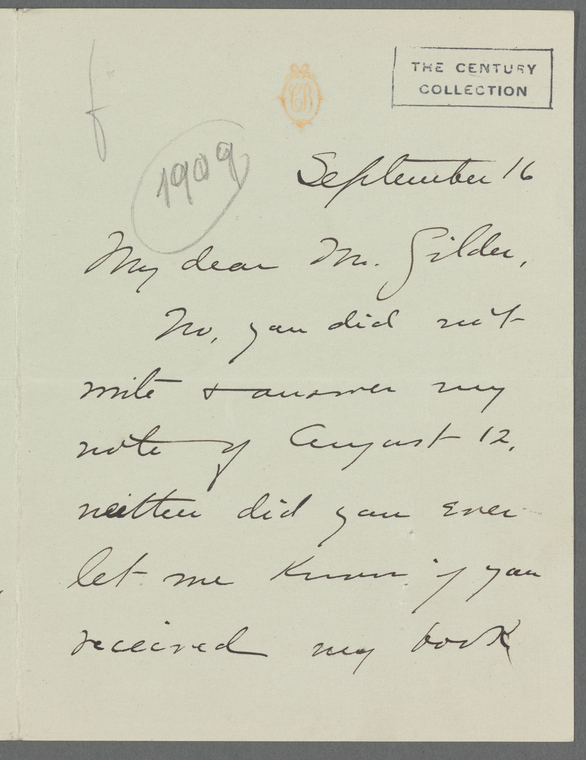 THE CENTURY
COLLECTION
1909
September 16
My dear Mr. Gilder,
No, you did not
write & answer my
note of August 12,
neither did you ever
let me know if you
received my book